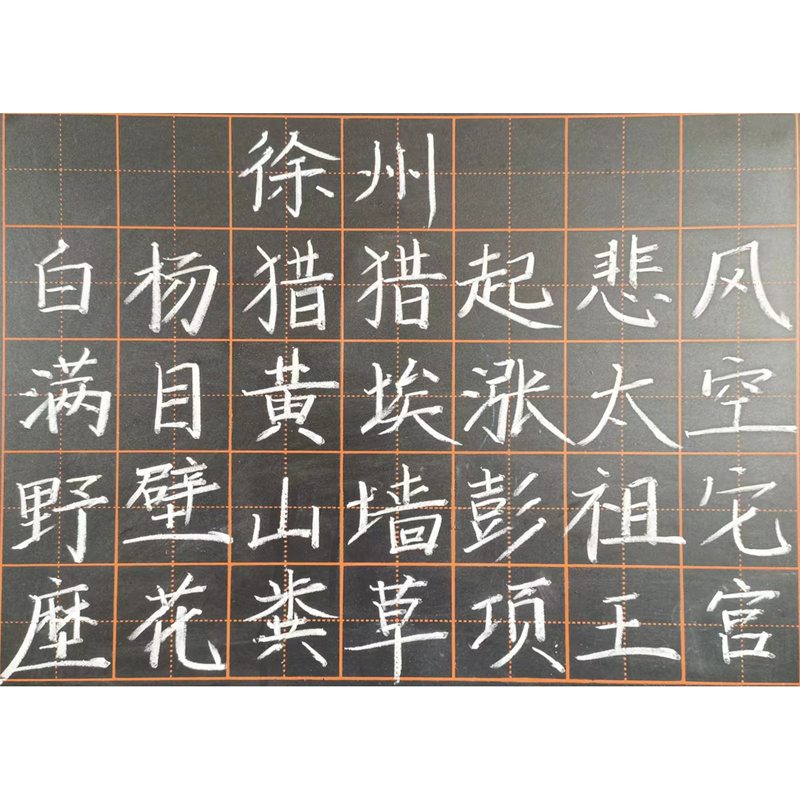 徐州
白杨猎猎起悲风
满目黄埃涨太空
野壁山墙彭祖宅
塺花粪草项王宫